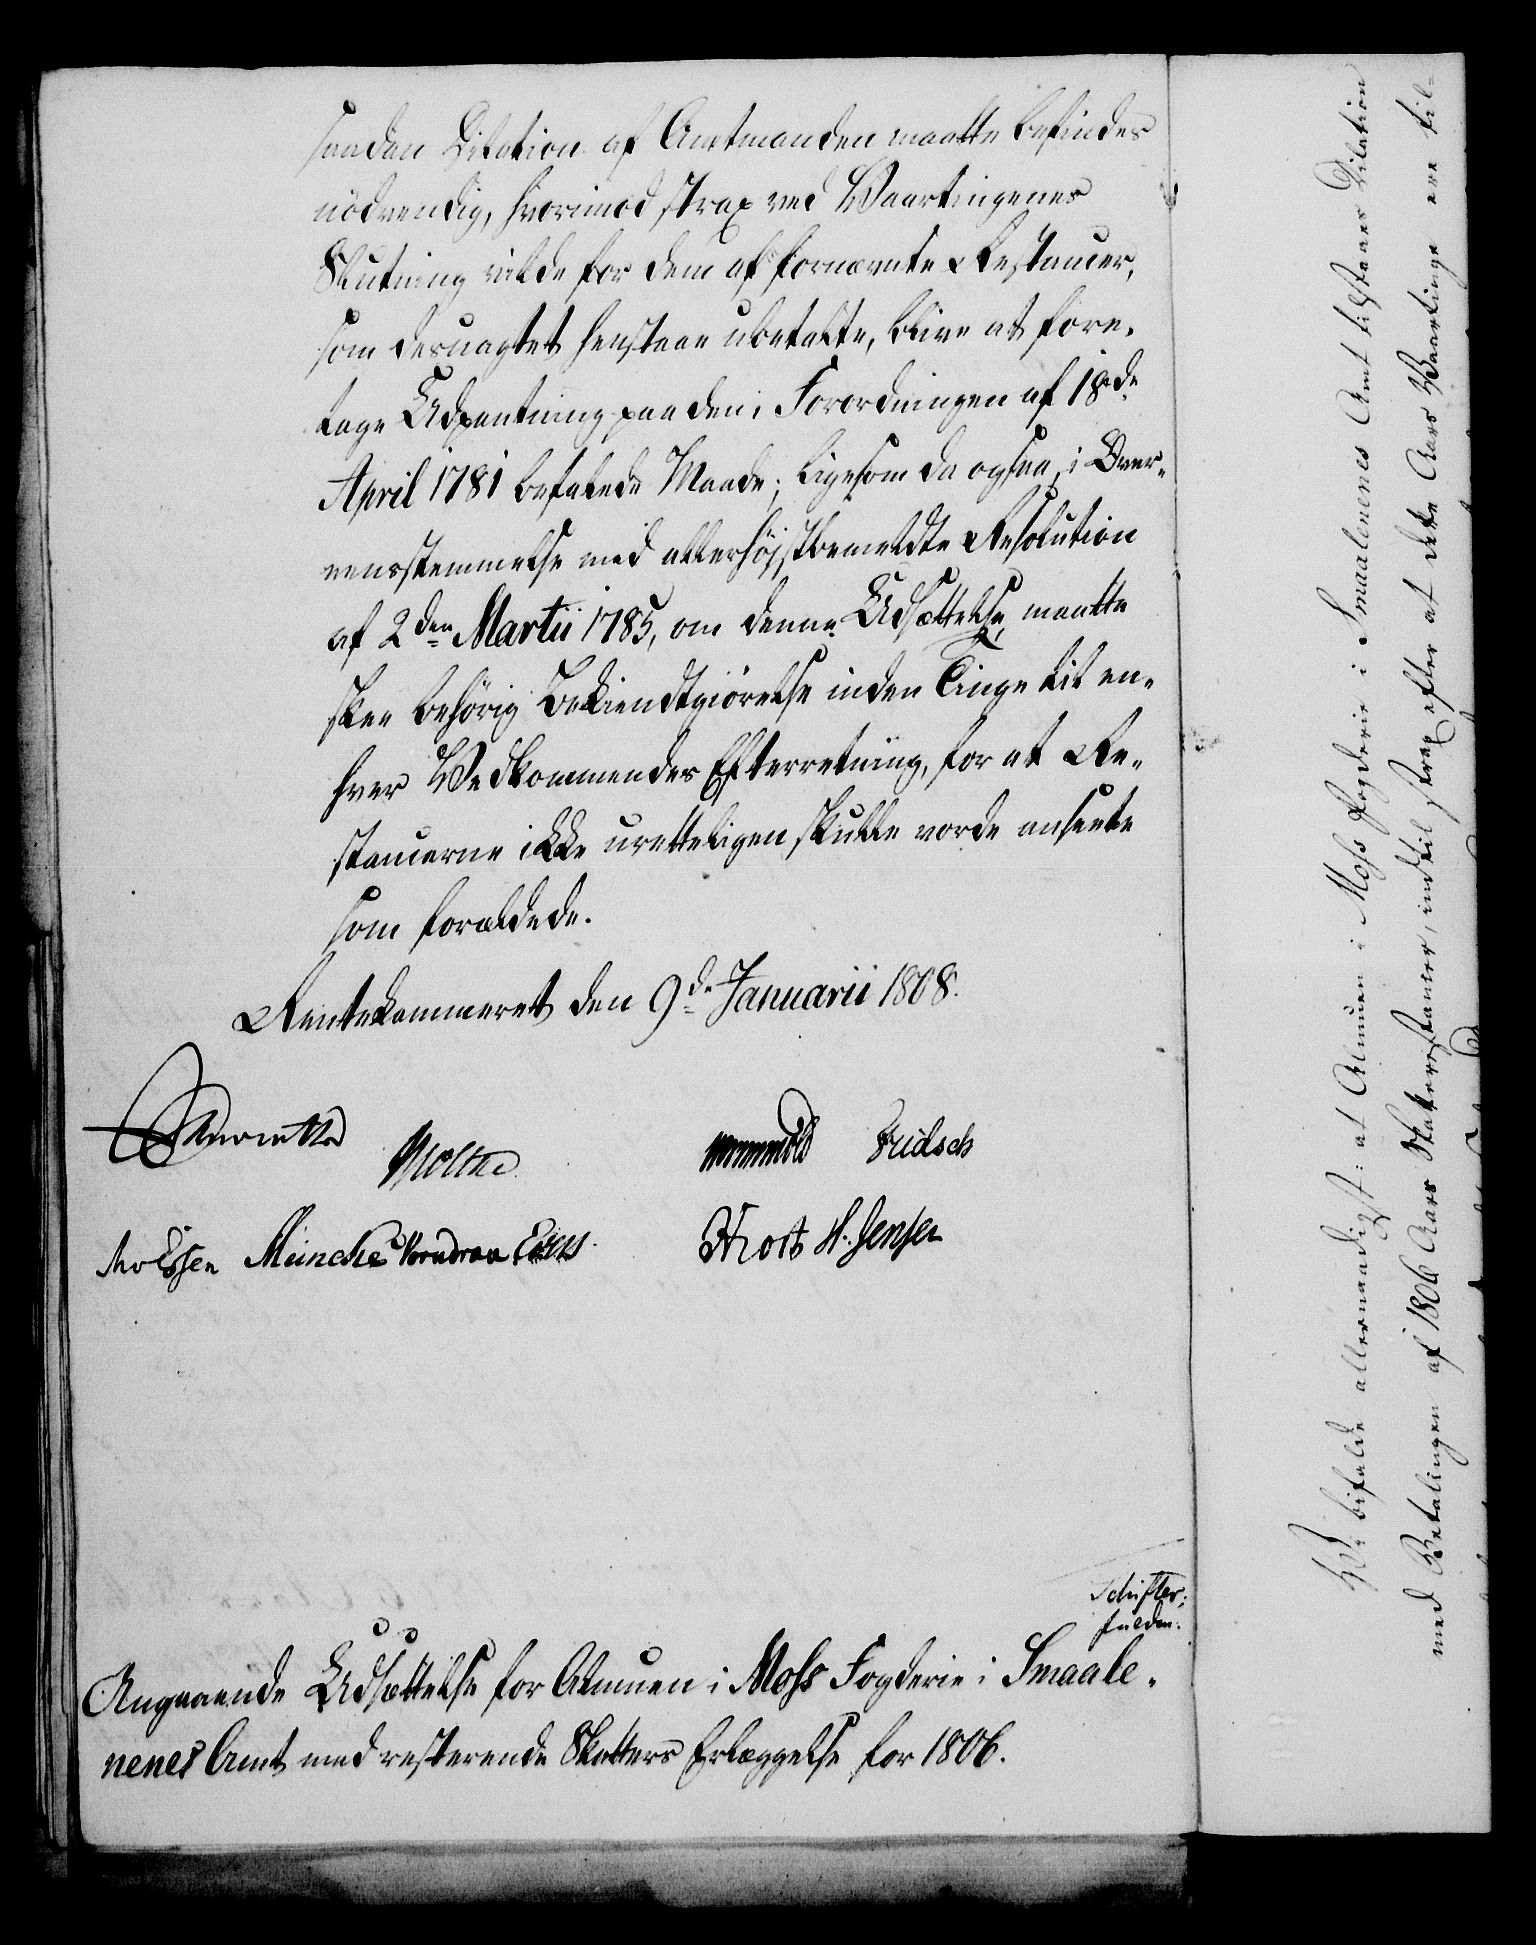 saadan Dilation af Amtmanden maatte befindes
nödvendig, hvorimod strax ved Vaartingenes
Slutning vilde for dem af fornævnte Restancer,
som desuagtet henstaae ubetalte, blive at fore-
tage Udpantning paa den i Forordningen af 18de
April 1781 befalede Maade; ligesom da ogsaa, i Over-
eensstemmelse med allerhöjstbemeldte Resolution
af 2den Martii 1785, om denne Udsættelse, maatte
skee behörig Bekiendtgiörelse inden Tinge til en-
hver Vedkommendes Efterretning, for at Re-
stancerne ikke uretteligen skulle vorde ansete
som forældede.
Rentekammeret den 9de Januarii 1808.
Moltke
Fridsch
Müncke Vorndran
Rost H. Jensen
Angaaende Udsættelse for Almuen i Moss Fogderie i Smaale-
nenes Amt med resterende Skatters Erlæggelse for 1806.
Vi bifalde allernaadigst: at Almuen i Moss Fogderie i Smaalenenes Amt tilstaaes Dilation
med Betalingen af 1806 Aars Skatterestancer, indtil strax efter at dette Aars Vaartinge ere til-